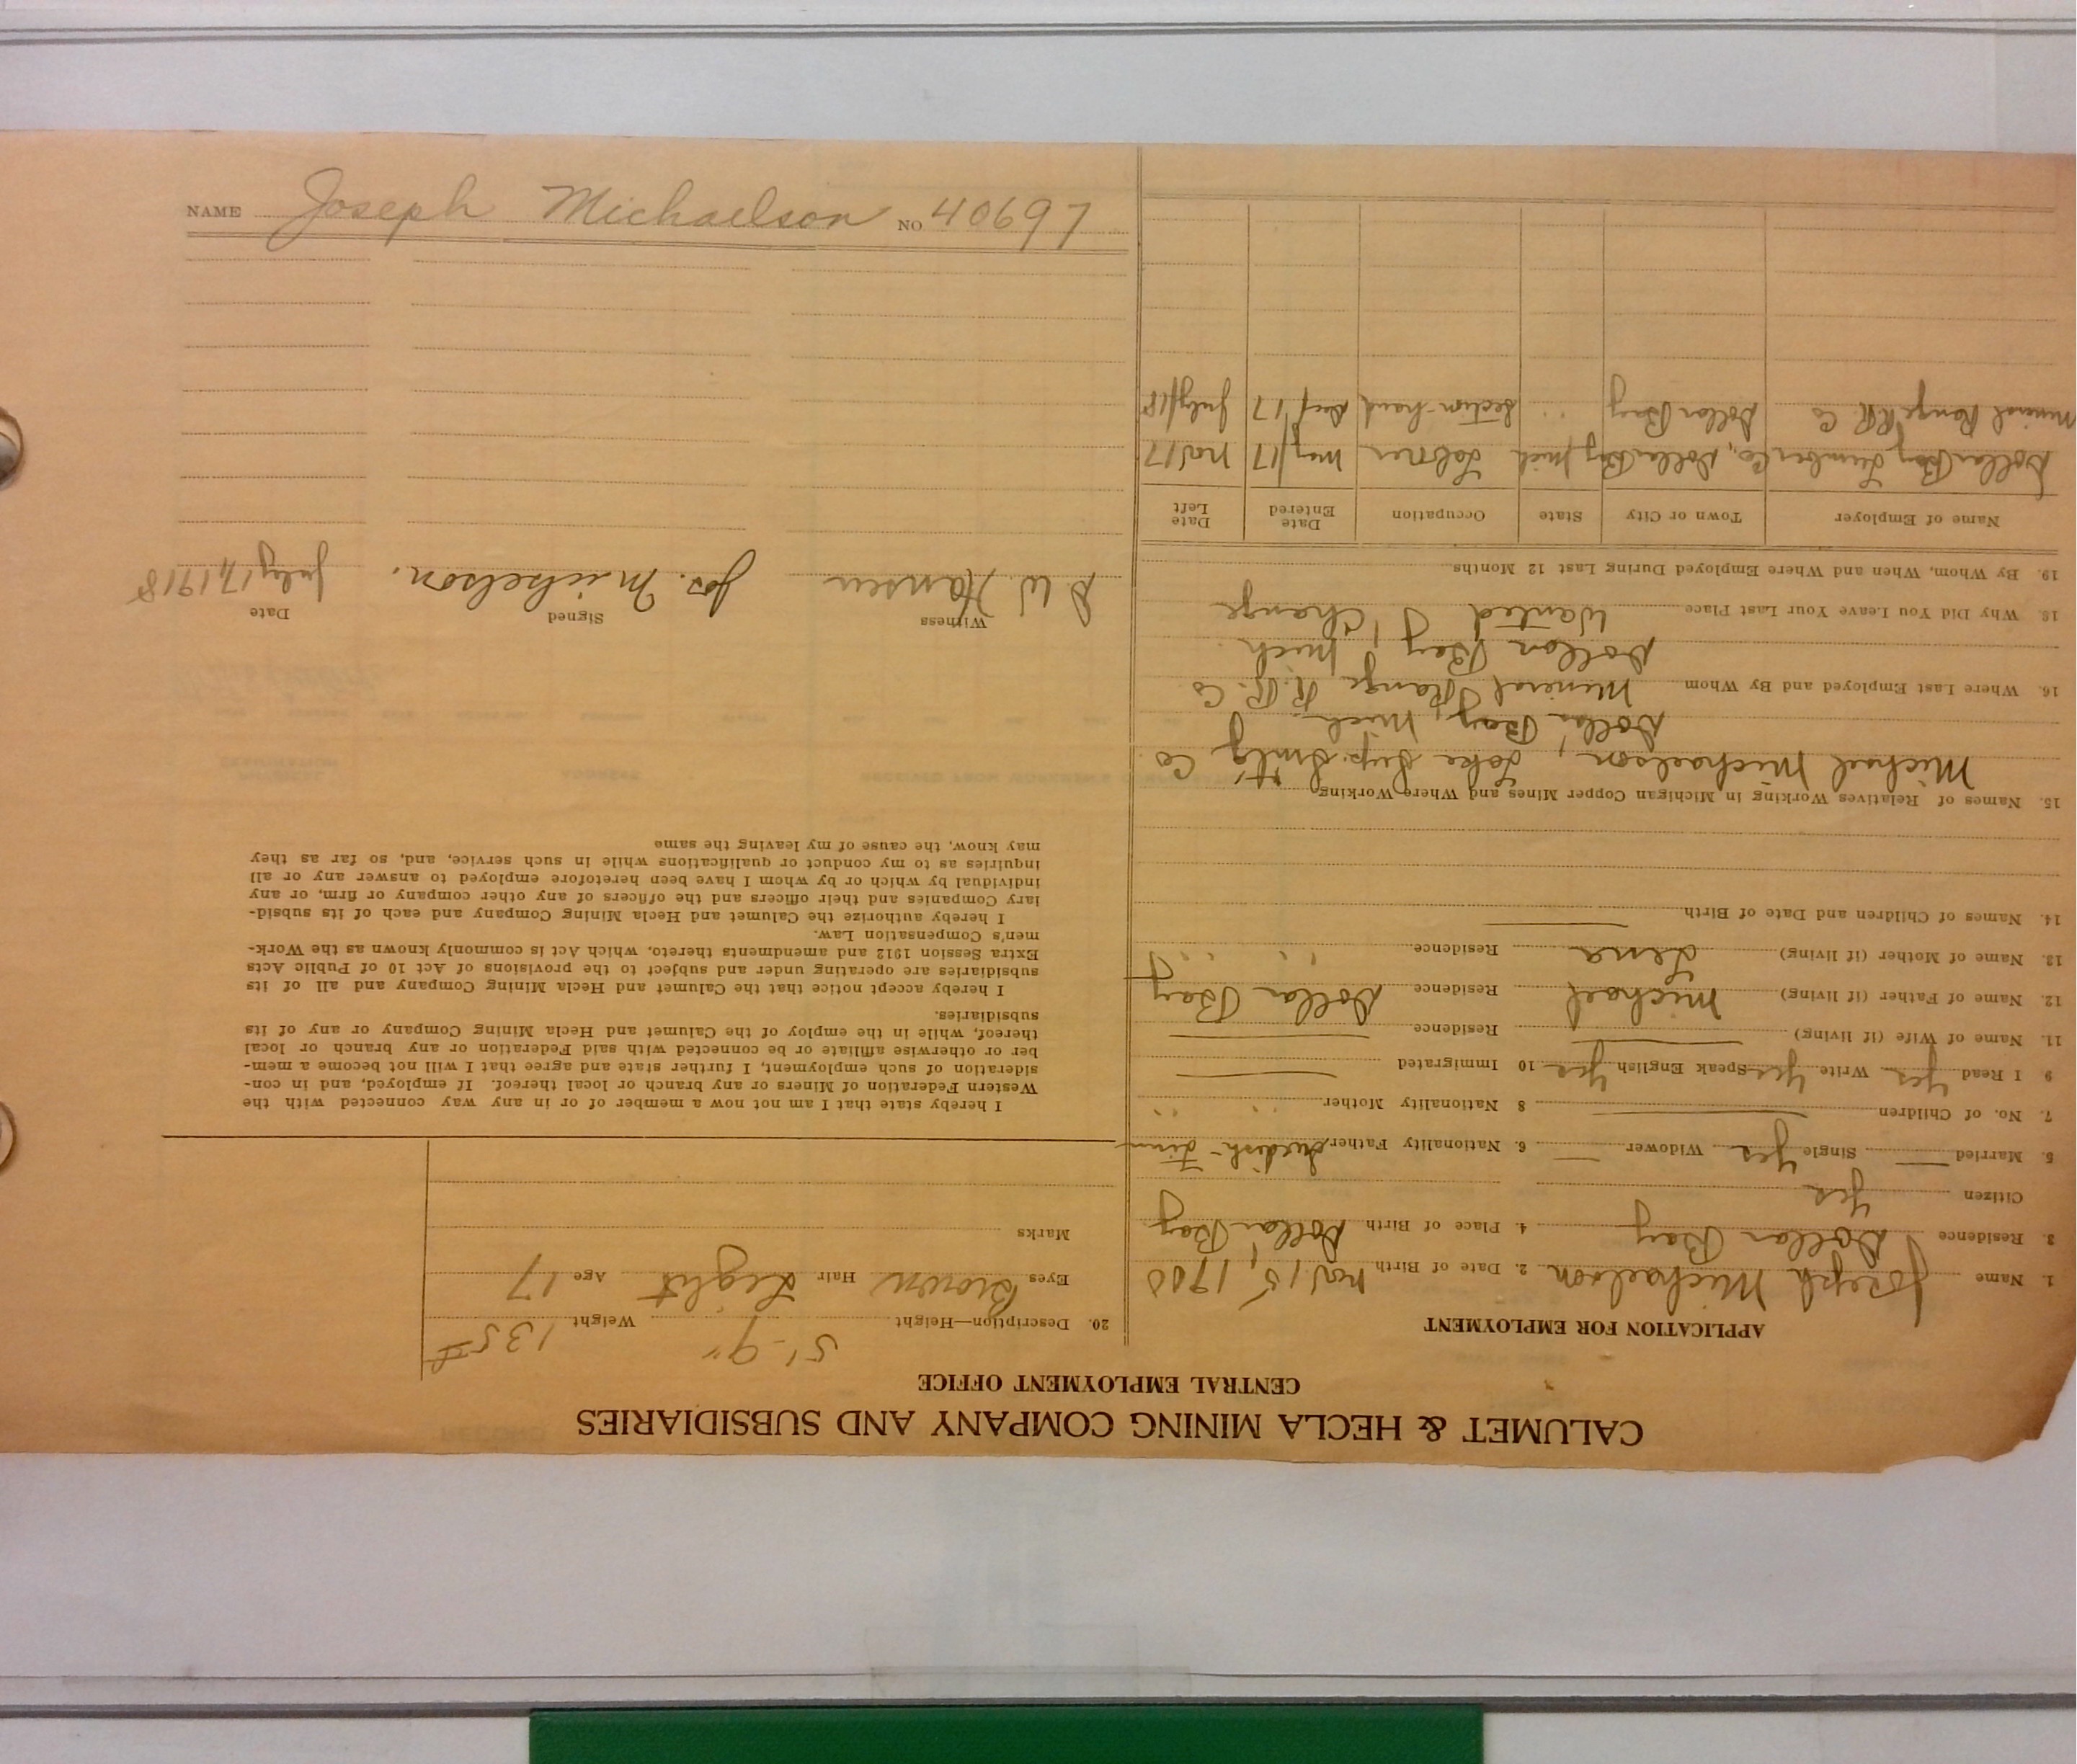 CALUMET & HECLA MINING COMPANY AND SUBSIDIARIES
CENTRAL EMPLOYMENT OFFICE
APPLICATION FOR EMPLOYMENT
1. Name Joseph Michaelson 2. Date of Birth Nov 15, 1900
3. Residence Dollar Bay 4. Place of Birth Dollar Bay
Citizen Yes
5. Married — Single Yes Widower — 6. Nationality Father Swedish-Finn
7. No. of Children — 8 Nationality Mother " "
9 I Read Yes Write Yes Speak English Yes 10 Immigrated —
11. Name of Wife (if living) — Residence —
12. Name of Father (if living) Michael Residence Dollar Bay
13. Name of Mother (if living) Lena Residence " "
14. Names of Children and Date of Birth —
15. Names of Relatives Working in Michigan Copper Mines and Where Working
Michael Michaelson, Lake Sup. Smltg Co
Dollar Bay, Mich.
16. Where Last Employed and By Whom Mineral Range R.R. Co
Dollar Bay, Mich.
18. Why Did You Leave Your Last Place Wanted Change
19. By Whom, When and Where Employed During Last 12 Months
Name of Employer Town or City State Occupation Date Entered Date Left
Dollar Bay Lumber Co, Dollar Bay Mich Laborer May/17 Nov/17
Mineral Range RR Co Dollar Bay " Section-hand Dec/17 July/18
20. Description—Height 5'-9" Weight 135#
Eyes Brown Hair Light Age 17
Marks
I hereby state that I am not now a member of or in any way connected with the
Western Federation of Miners or any branch or local thereof. If employed, and in con-
sideration of such employment, I further state and agree that I will not become a mem-
ber or otherwise affiliate or be connected with said Federation or any branch or local
thereof, while in the employ of the Calumet and Hecla Mining Company or any of its
subsidiaries.
I hereby accept notice that the Calumet and Hecla Mining Company and all of its
subsidiaries are operating under and subject to the provisions of Act 10 of Public Acts
Extra Session 1912 and amendments thereto, which Act is commonly known as the Work-
men's Compensation Law.
I hereby authorize the Calumet and Hecla Mining Company and each of its subsid-
iary Companies and their officers and the officers of any other company or firm, or any
individual by which or by whom I have been heretofore employed to answer any or all
inquiries as to my conduct or qualifications while in such service, and, so far as they
may know, the cause of my leaving the same
Witness Signed Date
D W Hansen Jos. Michelson. July 17, 1918
NAME Joseph Michaelson NO 40697